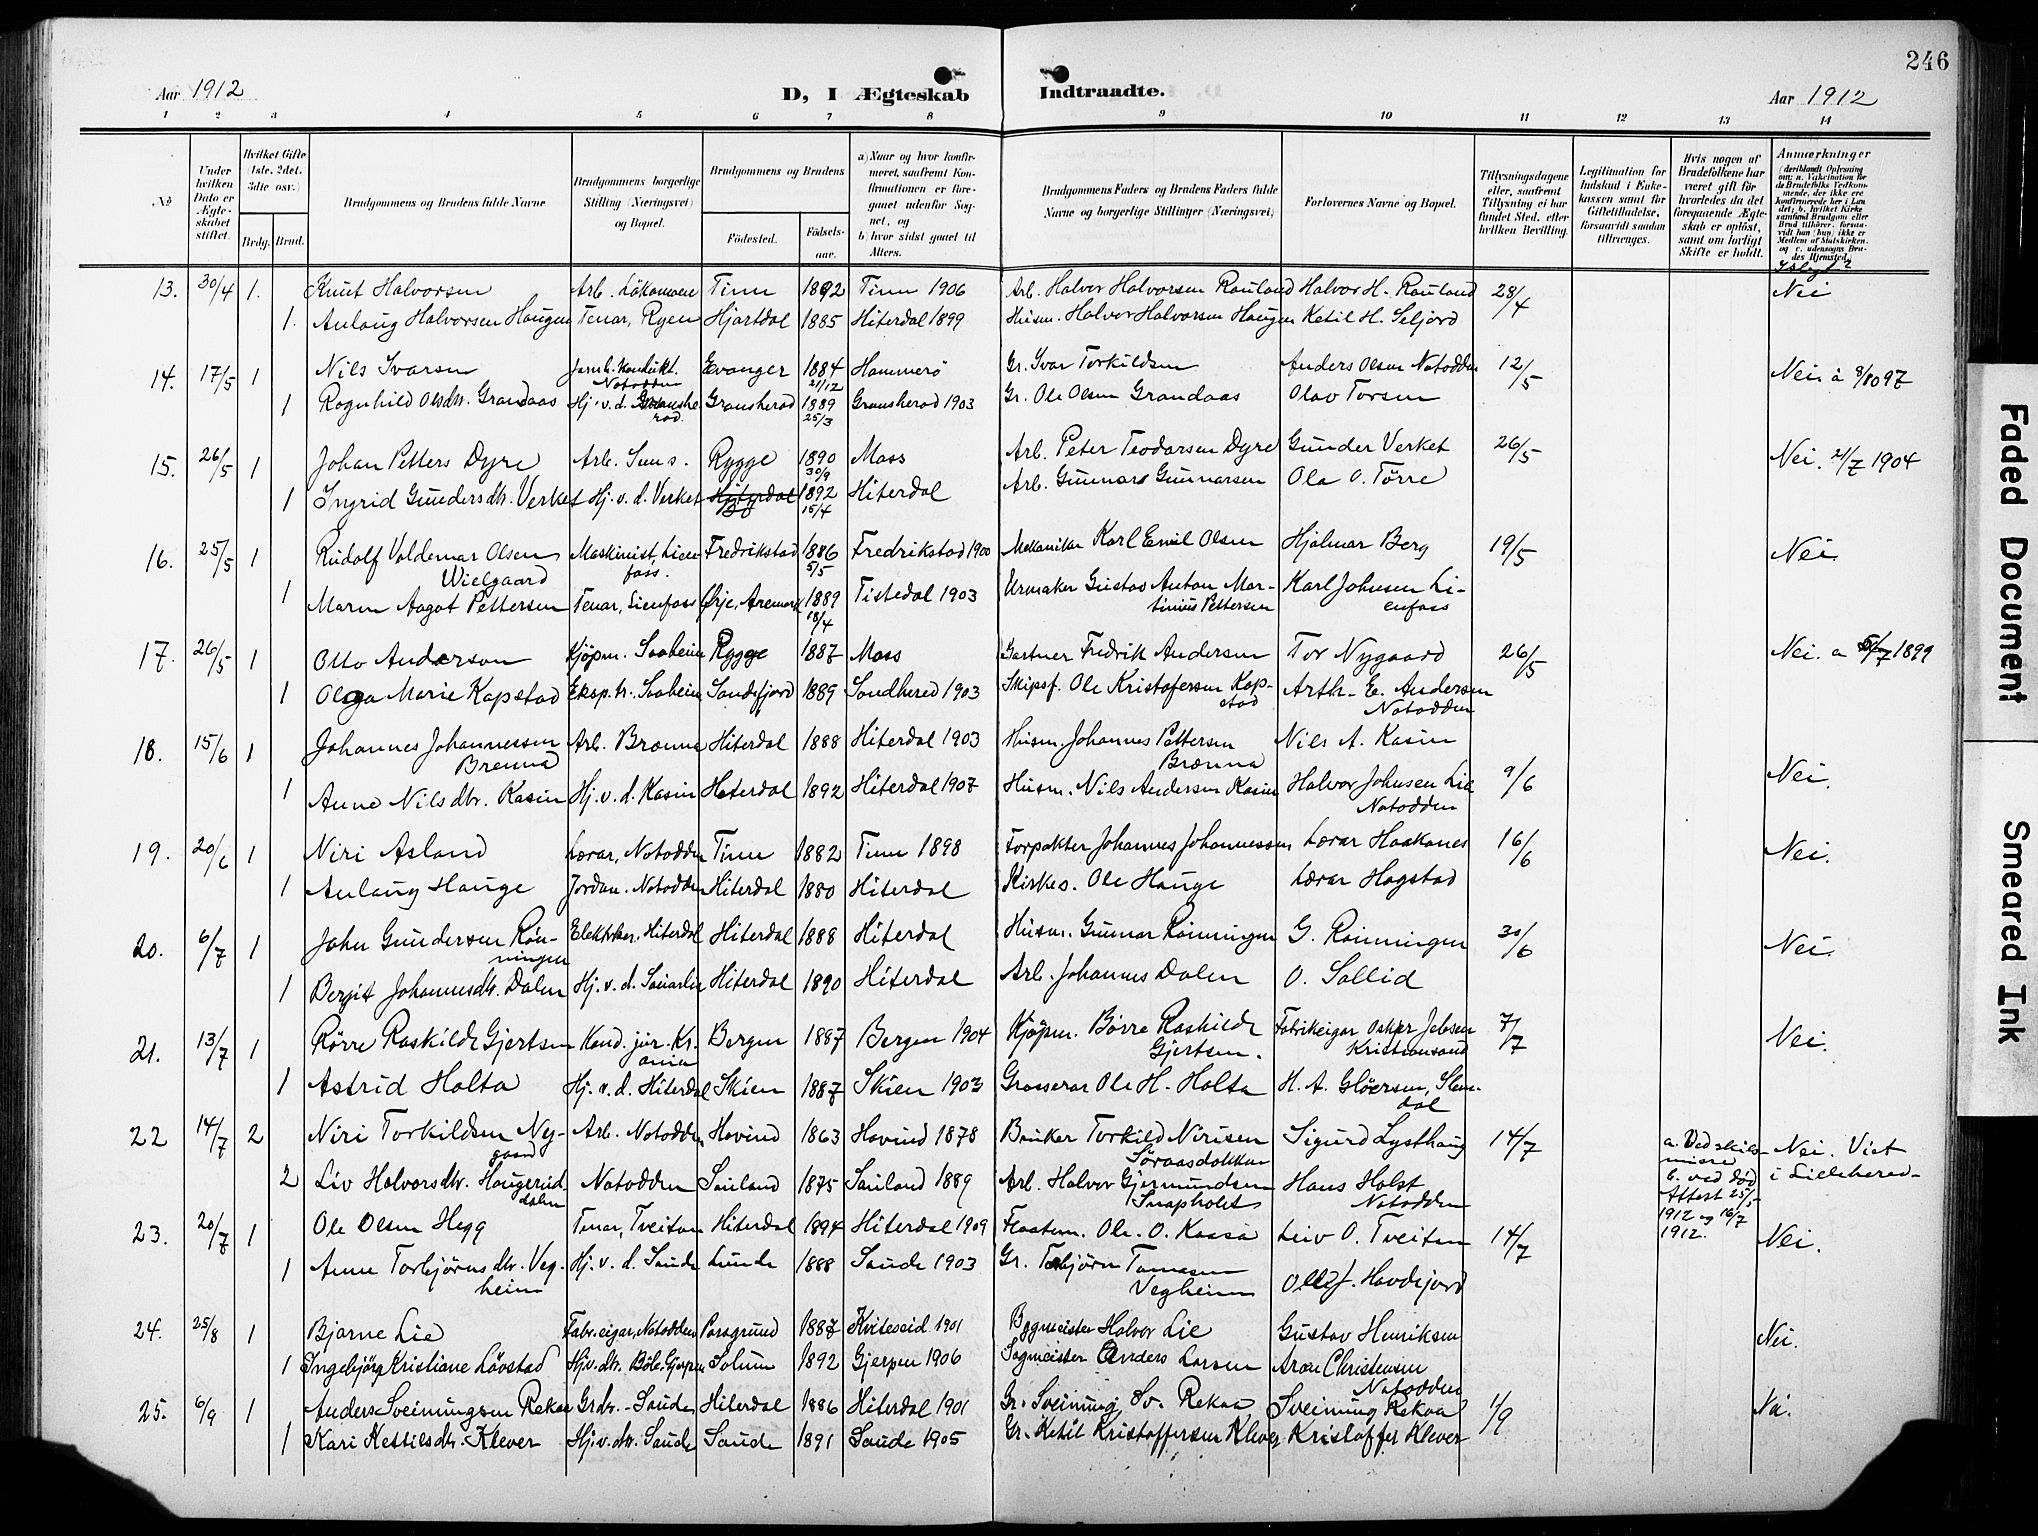 246
Aar 1912
D, I Ægteskab Indtraadte.
Aar 1912
1 2 3 4 5 6 7 8 9 10 11 12 13 14
No
Under hvilken Dato er Ægteskabet stiftet.
Hvilket Gifte (1ste, 2det, 3die osv.)
Brdg. Brud.
Brudgommens og Brudens fulde Navne
Brudgommens borgerlige Stilling (Næringsvei) og Bopæl.
Brudgommens og Brudens
Fødested.
Fødselsaar.
a) Naar og hvor konfirmeret, saafremt Konfirmationen er foregaaet udenfor Sognet, og
b) hvor sidst gaaet til Alters.
Brudgommens Faders og Brudens Faders fulde Navne og borgerlige Stillinger (Næringsvei)
Forlovernes Navne og Bopæl.
Tillysningsdagene eller, saafremt Tillysning ei har fundet Sted, efter hvilken Bevilling.
Legitimation for Indskud i Enkekassen samt for Giftetilladelse, forsaavidt saadan tiltrænges.
Hvis nogen af Brudefolkene har været gift før hvorledes da det foregaaende Ægteskab er opløst, samt om lovligt Skifte er holdt.
Anmærkninger
13. 30/4 1. Knut Halvorsen Arb. Tinn 1892 Tinn 1906 Arb. Halvor Halvorsen Rauland Halvor H. Rauland 28/4 Nei
1. Anlaug Halvorsen Haugen Tenar, Ryen Hjartdal 1885 Hiterdal 1899 Husm. Halvor Halvorsen Haugen Ketil H. Seljord
14. 17/5 1 Nils Ivarsen Jernb. Kondukt. Notodden Evanger 1884 21/12 Hammerö Gr. Ivar Torkildsen Anders Olsen Notodden 12/5 Nei. a 8/10 97
1 Ragnhild Olsdtr. Grandaas Hj. v. d. Gransherad Gransherad 1889 25/3 Gransherad 1903 Gr. Ole Olsen Grandaas Olav Torsen
15. 26/5 1 Johan Petters Dyre Arb. Sems. Rygge 1890 30/9 Moss Arb. Peter Teodorsen Dyre Gunder Verket 26/5 Nei. 21/7 1904
1 Ingrid Gundersdtr. Verket Hj. v. d. Verket Hiterdal Bö 1892 15/4 Hiterdal Arb. Gunnar Gunnarsen Ola O. Törre
16. 25/5 1 Rudolf Valdemar Olsen Wielgaard Maskinist, Lienfoss. Fredrikstad 1886 5/5 Fredrikstad 1900 Mekaniker Karl Emil Olsen Hjalmar Berg 19/5 Nei.
1 Maren Aagot Pettersen Tenar, Lienfoss Ørje, Aremark 1889 18/4 Tistedal 1903 Urmaker Gustav Anton Martinius Pettersen Karl Johnsen Lienfoss
17. 26/5 1 Otto Anderson Kjöpm. Saaheim Rygge 1887 Moss Gartner Fredrik Andersen Tor Nygaard 26/5 Nei. a 1899
1 Olga Marie Kapstad Eksp. tr. Saaheim Sandefjord 1889 Sandherad 1903 Skipsf. Ole Kristofersen Kapstad Arth. E. Andersen Notodden
18. 15/6 1 Johannes Johannessen Brenna Arb. Brænna Hiterdal 1888 Hiterdal 1903 Husm. Johannes Pettersen Brænna Nils A. Kasin 9/6 Nei.
1 Anne Nilsdtr. Kasin Hj. v. d. Kasin Hiterdal 1892 Hiterdal 1907 Husm. Nils Andersen Kasin Halvor Johnsen Lie Notodden
19. 20/6 1 Niri Asland Lærar, Notodden Tinn 1882 Tinn 1898 Forpakter Johannes Johannessen Lærar Haakanes 16/6 Nei.
1 Anlaug Hauge Jordm. Notodden Hiterdal 1880 Hiterdal Kirkes. Ole Hauge Lærar Hagstad
20. 6/7 1 John Gundersen Rönningen Elektriker. Hiterdal Hiterdal 1888 Hiterdal Husm. Gunnar Rönningen G. Rönningen 30/6 Nei.
1 Bergit Johannesdtr. Dalen Hj. v. d. Hiterdal 1890 Hiterdal Arb. Johannes Dalen O. Sollid
21. 13/7 1 Börre Roskilde Gjertsen Kand. jur. Kr.ania Bergen 1887 Bergen 1904 Kjöpm. Börre Roskilde Gjertsen. Fabrikeigar Oskar Jebsen Kristiansand 7/7 Nei.
1 Astrid Holta Hj. v. d. Hiterdal Skien 1887 Skien 1903 Grosserar Ole H. Holta H. A. Glöersen, Slemdal
22 14/7 2 Niri Torkildsen Nygaard Arb. Notodden Hovind 1863 Hovind 1878 Banker Torkild Nirisen Söraasdokken Sigurd Lysthaug 14/7 a. Ved skilsmisse b. ved död Attest 25/5 1912 og 16/7 1912. Nei. Viet i Lilleherad.
2 Liv Halvorsdtr. Haugeruddalen Notodden Sauland 1875 Sauland 1889 Arb. Halvor Gjermundsen Snapholet Hans Holst Notodden
23. 20/7 1 Ole Olsen Hegg Tenar, Tveitan Hiterdal 1894 Hiterdal 1909 Flaatem. Ole. O. Kaasa Leiv O. Tveiten 14/7 Nei.
1 Anne Torbjörnsdtr. Vegheim Hj. v. d. Saude Lunde 1888 Saude 1903 Gr. Torbjörn Tomasen Vegheim Havdejord
24. 25/8 1 Bjarne Lie Fabr.eigar, Notodden Porsgrund 1887 Kviteseid 1901 Bygmeister Halvor Lie Gustav Henriksen Nei.
1 Ingebjörg Kristiane Lövstad Hj. v. dtr. Böle. Gjerpen Solum 1892 Gjerpen 1906 Sagmeister Anders Larsen Aron Christensen Notodden
25. 6/9 1 Anders Sveinungsen Rekaa Grbr. Saude Hiterdal 1886 Hiterdal 1901 Gr. Sveinung Sv. Rekaa Sveinung Rekaa 1/9 Nei.
1 Kari Kettilsdtr. Klever Hj. v. dtr. Saude Saude 1891 Saude 1905 Gr. Ketil Kristoffersen Klever Kristoffer Klever
Faded Document
Smeared Ink